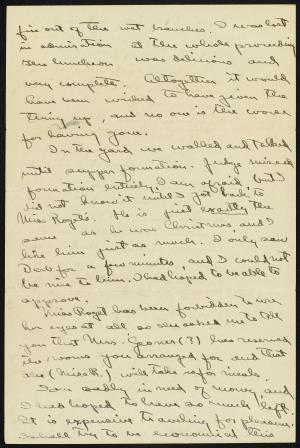 fire out of the wet branches. I was lost
in admiration at the whole proceeding
The luncheon was delicious and
very complete. Altogether it would
have been wicked to have given the
thing up, and no one is the worse
for having gone.
In the yard we walked and talked
until supper formation. Judge missed
formation entirely, I am afraid, but I
did not know it until I got back to
Miss Rogét's. He is just exactly the
same as he was Christmas, and I
like him just as much. I only saw
for a few minutes, and I could not
be nice to him. I had hoped to be able to
approve.
Miss Roget has been forbidden to use
her eyes at all so she asked me to tell
you that Mrs. (?) has reserved
the rooms you arranged for and that
she (Miss R.) will take meals.
I am sadly in need of money, and
I had hoped to have so much left.
It is expensive traveling for pleasure.
I shall try to be economical this